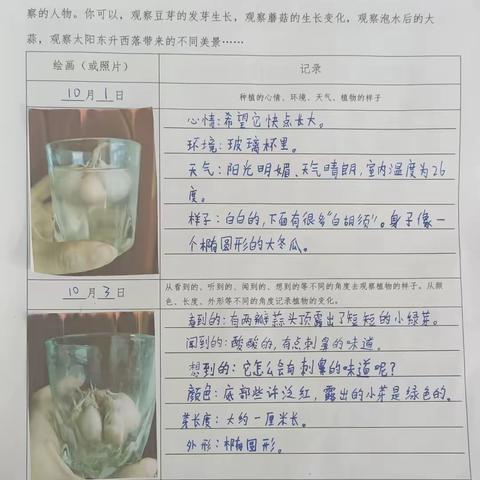 察的人物。你可以，观察豆芽的发芽生长，观察蘑菇的生长变化，观察泡水后的大
蒜，观察太阳东升西落带来的不同美景……
绘画（或照片）
记录
10月1日
种植的心情、环境、天气、植物的样子
心情：希望它快点长大。
环境：玻璃杯里。
天气：阳光明媚、天气晴朗，室内温度为26
度。
样子：白白的，下面有很多“白胡须”。身子像一
个椭圆形的大冬瓜。
10月3日
从看到的、听到的、闻到的、想到的等不同的角度去观察植物的样子。从颜
色、长度、外形等不同的角度记录植物的变化。
看到的：有两瓣蒜头顶露出了短短的小绿芽。
闻到的：酸酸的，有点刺鼻的味道。
想到的：它怎么会有刺鼻的味道呢？
颜色：底部些许泛红，露出的小芽是绿色的。
芽长度：大约一厘米长。
外形：椭圆形。